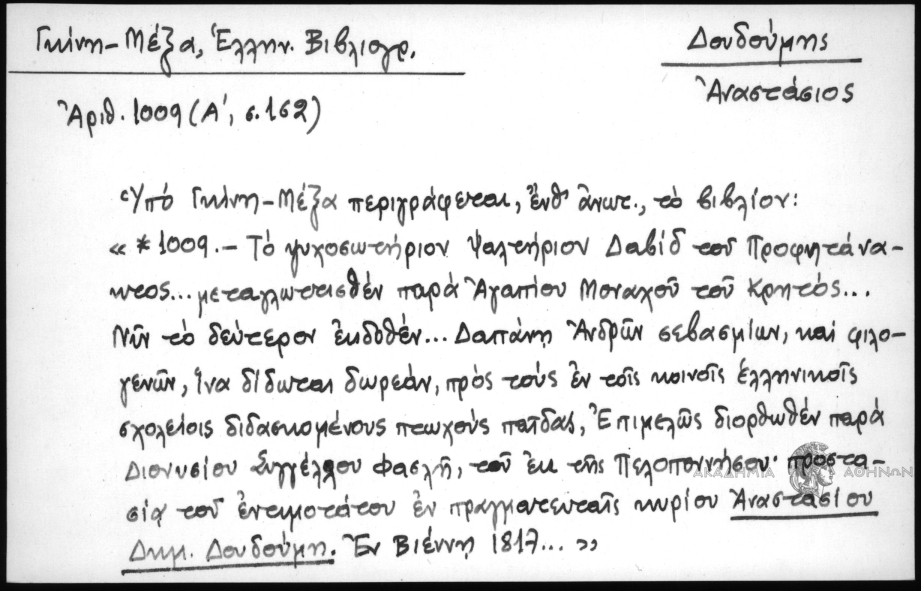 Γκίνη-Μέξα, Ἑλλην. Βιβλιογρ.
Δουδούμης
Ἀναστάσιος
Ἀριθ. 1009 (Α΄, σ. 162)
Ὑπό Γκίνη-Μέξα περιγράφεται, ἔνθ' ἄνωτ., τό βιβλίον:
« * 1009. - Τό ψυχοσωτήριον Ψαλτήριον Δαβίδ τοῦ Προφητάνα-
κτος... μεταγλωττισθέν παρά Ἀγαπίου Μοναχοῦ τοῦ Κρητός...
Νῦν τό δεύτερον ἐκδοθέν... Δαπάνῃ Ἀνδρῶν σεβασμίων, καί φιλο-
γενῶν, ἵνα δίδωται δωρεάν, πρός τούς ἐν τοῖς κοινοῖς ἑλληνικοῖς
σχολείοις διδασκομένους πτωχούς παῖδας, Ἐπιμελῶς διορθωθέν παρά
Διονυσίου Συγγέλλου Φασλῆ, τοῦ ἐκ τῆς Πελοποννήσου· προστα-
σίᾳ τοῦ ἐντιμοτάτου ἐν πραγματευταῖς κυρίου Ἀναστασίου
Δημ. Δουδούμη. Ἐν Βιέννῃ 1817... »
ΑΚΑΔΗΜΙΑ ΑΘΗΝΩΝ